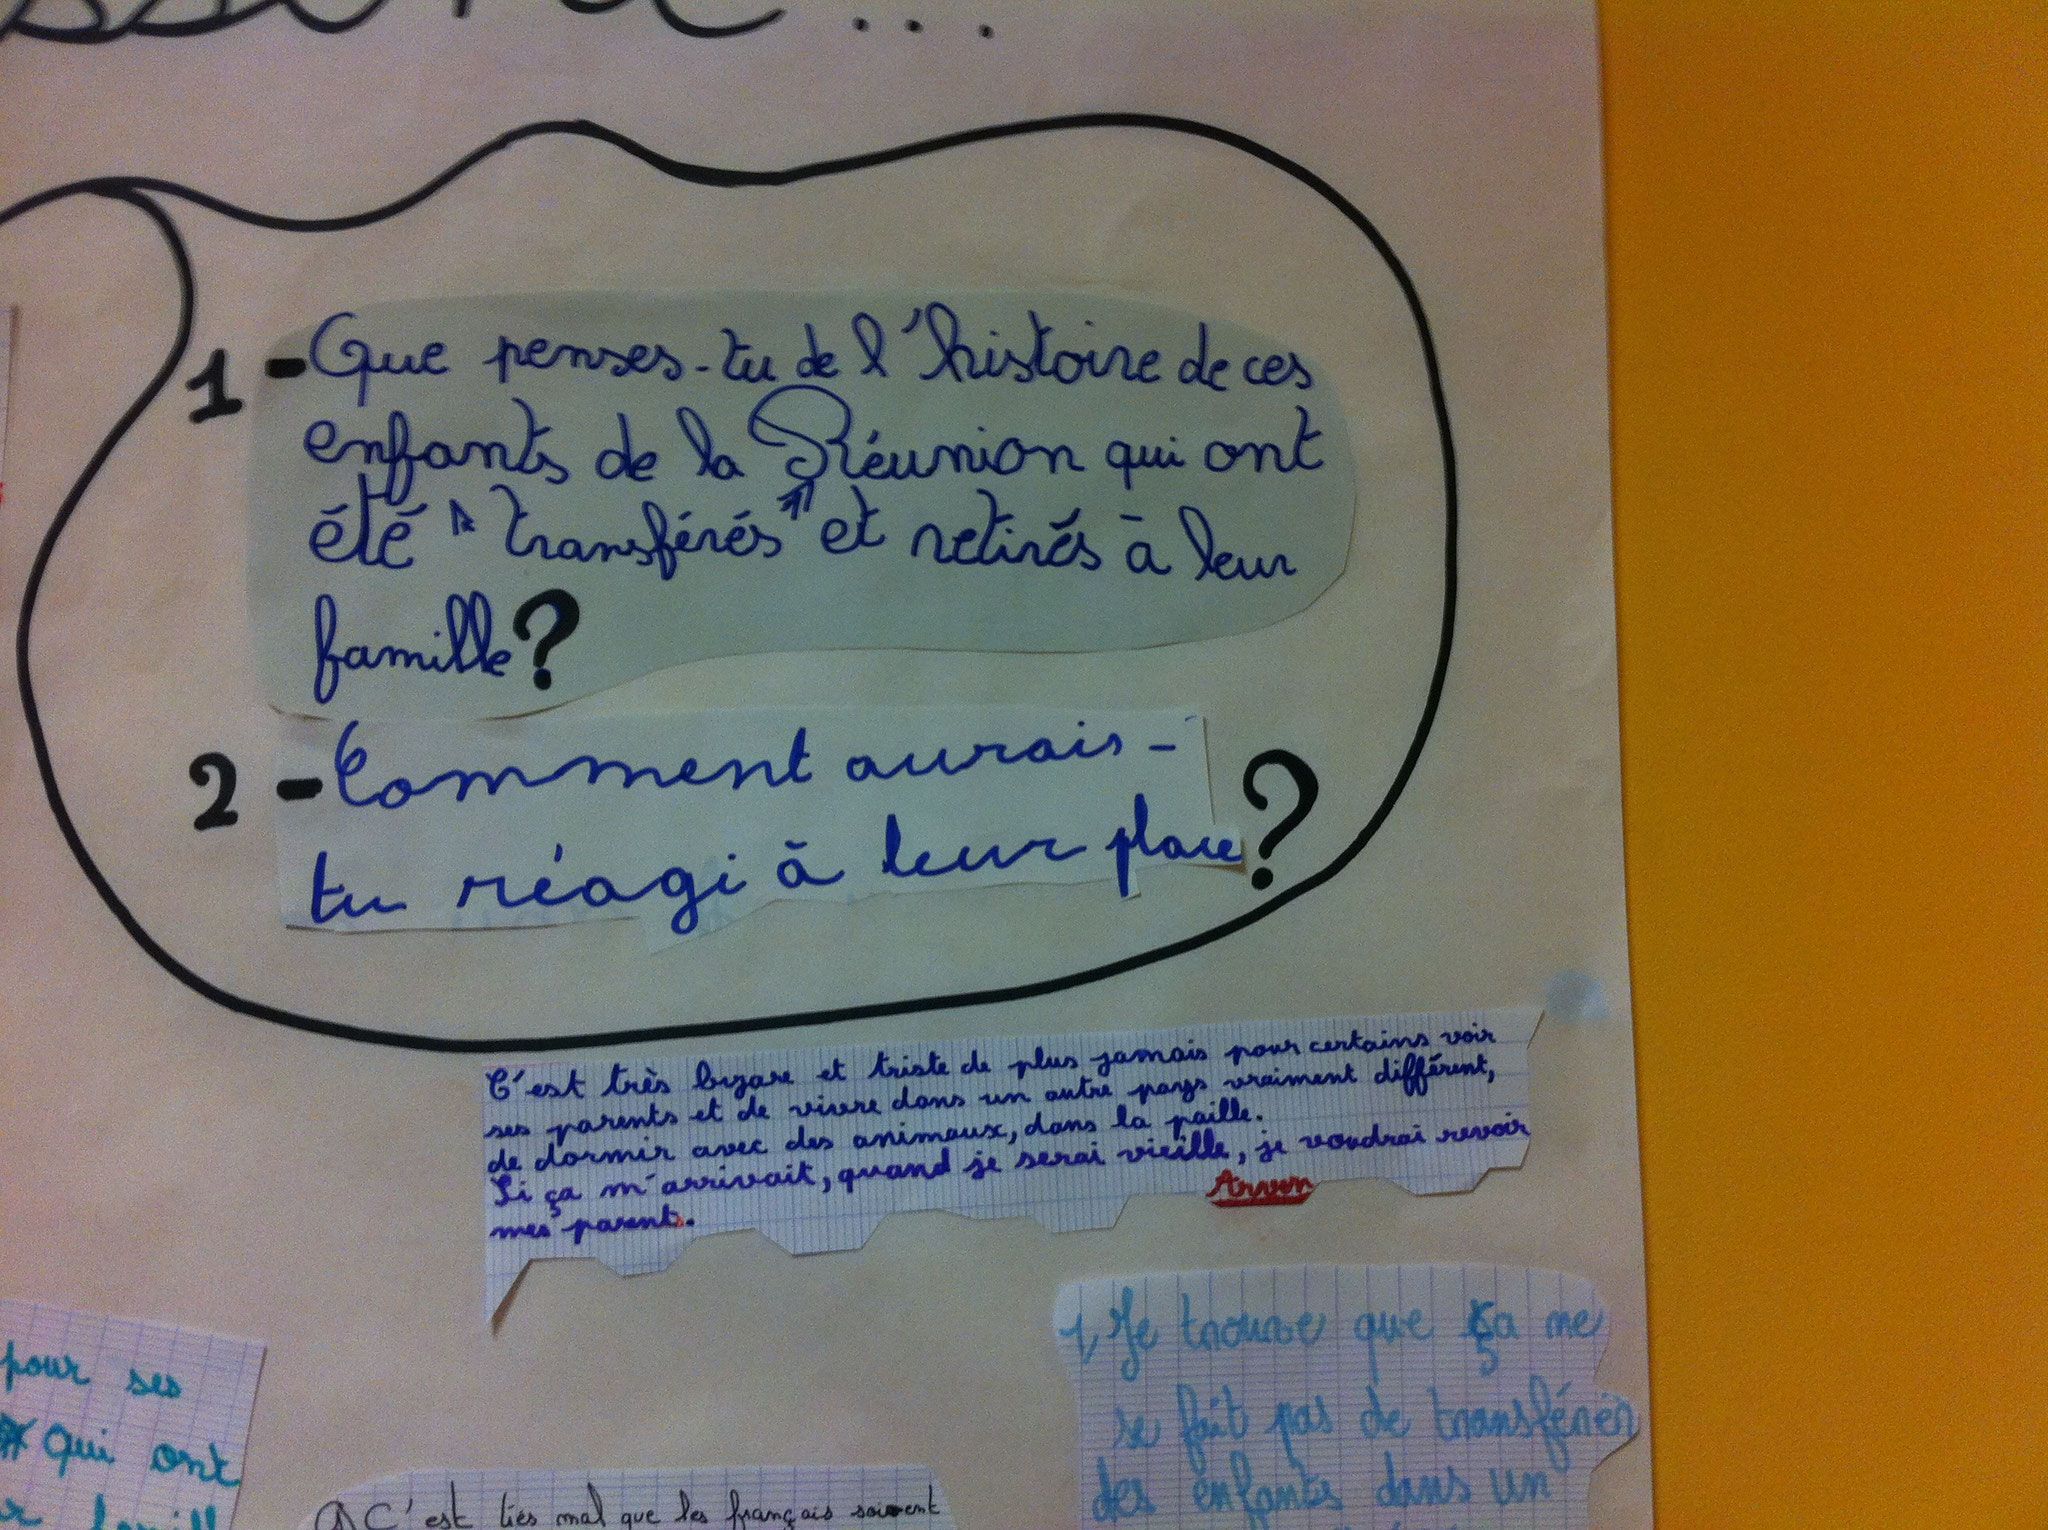 ...
1 - Que penses-tu de l'histoire de ces
enfants de la Réunion qui ont
été "transférés" et retirés à leur
famille ?
2 - Comment aurais-
tu réagi à leur place ?
C'est très bizare et triste de plus jamais pour certains voir
ses parents et de vivre dans un autre pays vraiment différent,
de dormir avec des animaux, dans la paille.
Si ça m'arrivait, quand je serai vieille, je voudrai revoir
mes parents.
Arven
1, Je trouve que ça ne
se fait pas de transférer
des enfants dans un
pour ses
qui ont
C'est très mal que les français soient